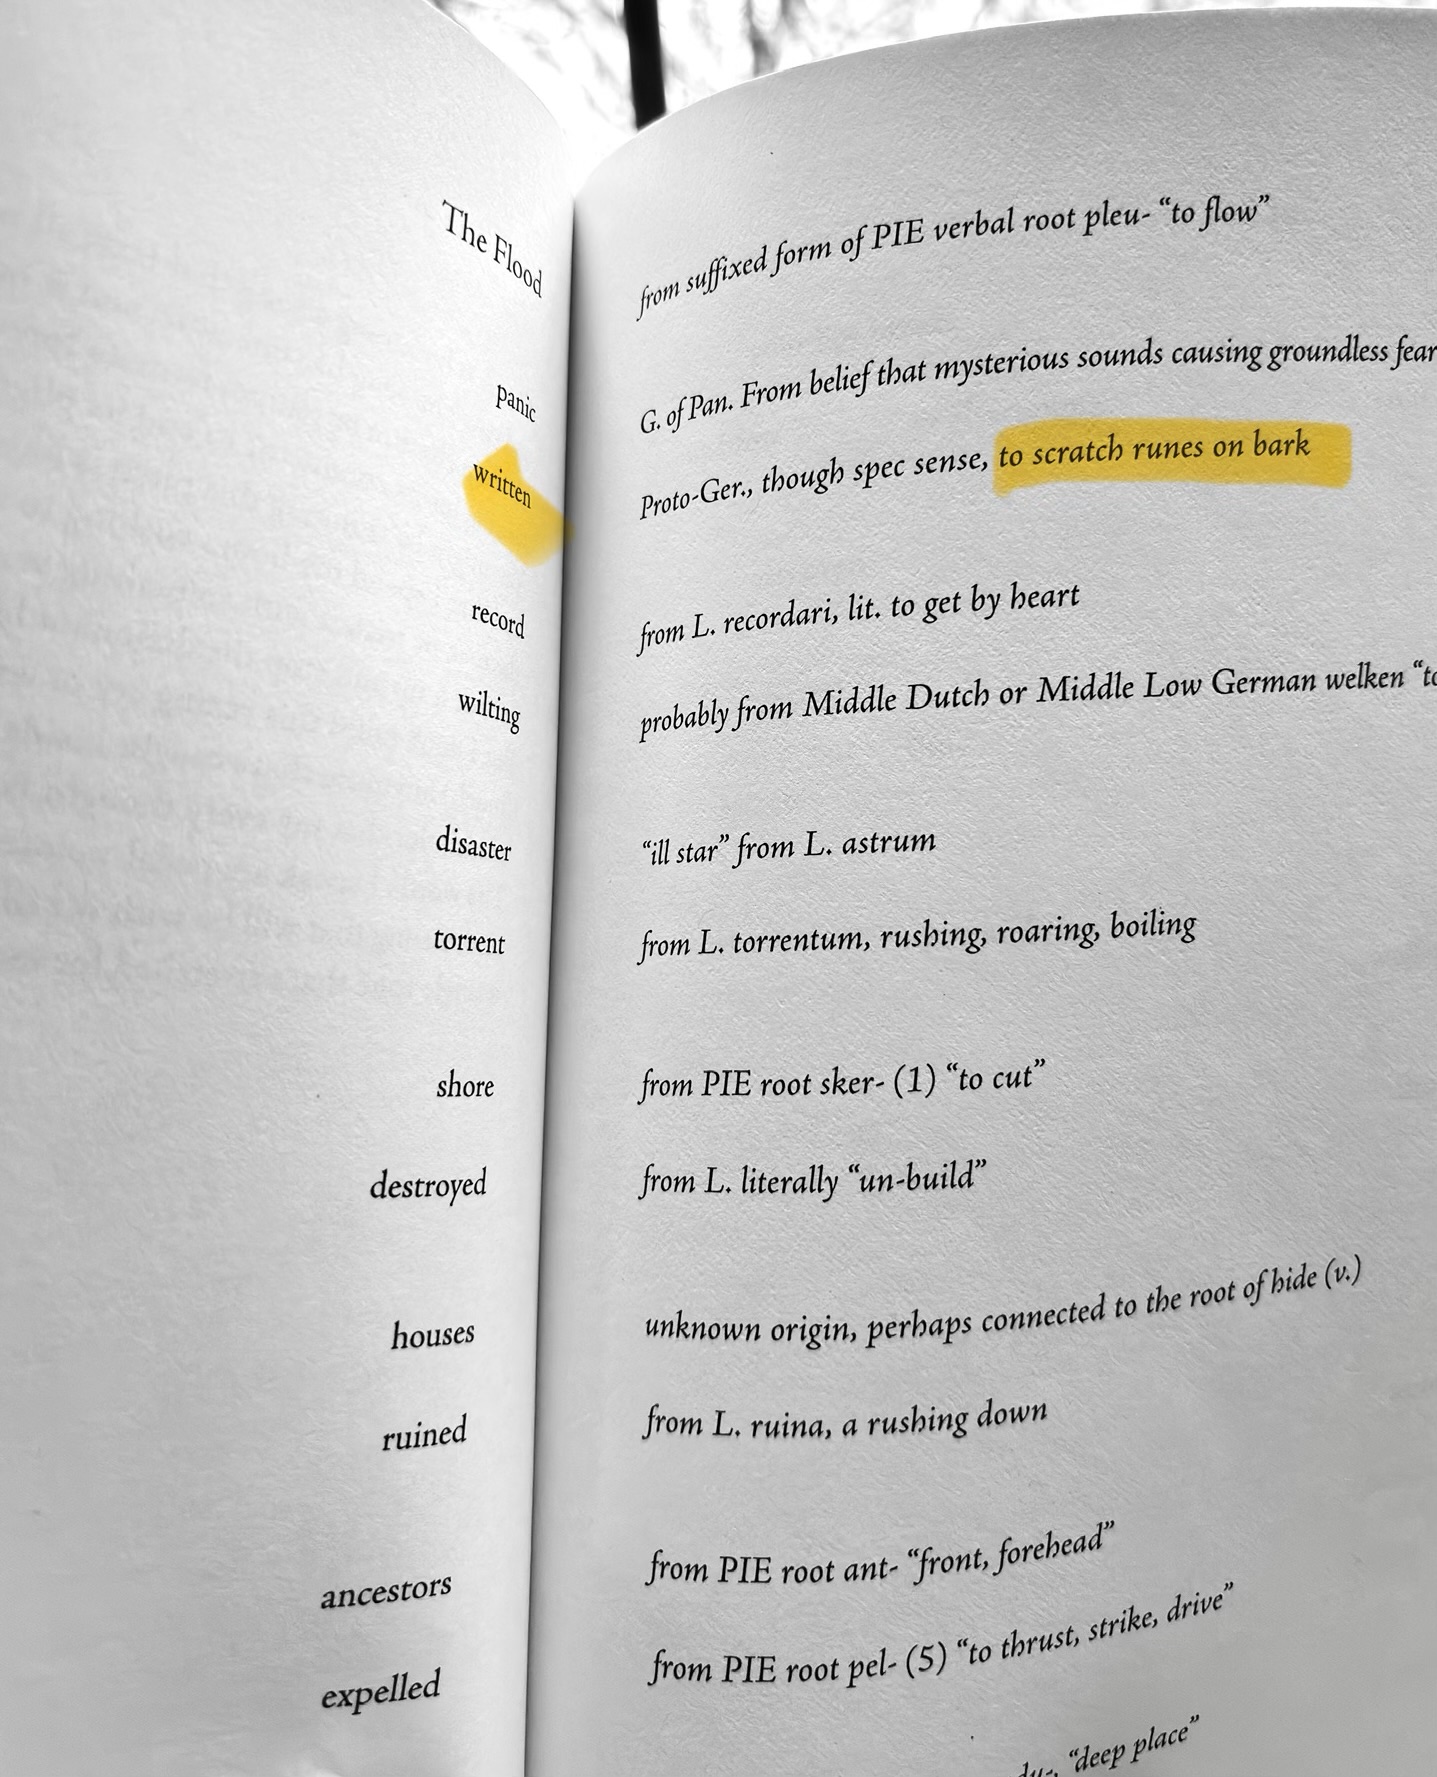 The Flood
from suffixed form of PIE verbal root pleu- “to flow”
panic
G. of Pan. From belief that mysterious sounds causing groundless fear
written
Proto-Ger., though spec sense, to scratch runes on bark
record
from L. recordari, lit. to get by heart
wilting
probably from Middle Dutch or Middle Low German welken “to
disaster
“ill star” from L. astrum
torrent
from L. torrentum, rushing, roaring, boiling
shore
from PIE root sker- (1) “to cut”
destroyed
from L. literally “un-build”
houses
unknown origin, perhaps connected to the root of hide (v.)
ruined
from L. ruina, a rushing down
ancestors
from PIE root ant- “front, forehead”
expelled
from PIE root pel- (5) “to thrust, strike, drive”
“deep place”